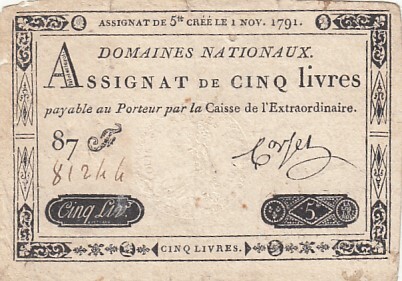 ASSIGNAT DE 5tt CRÉÉ LE 1 NOV. 1791.
DOMAINES NATIONAUX.
ASSIGNAT DE CINQ livres
payable au Porteur par la Caisse de l'Extraordinaire.
87 F
81244
Corsel
Cinq Liv.
5
CINQ LIVRES.